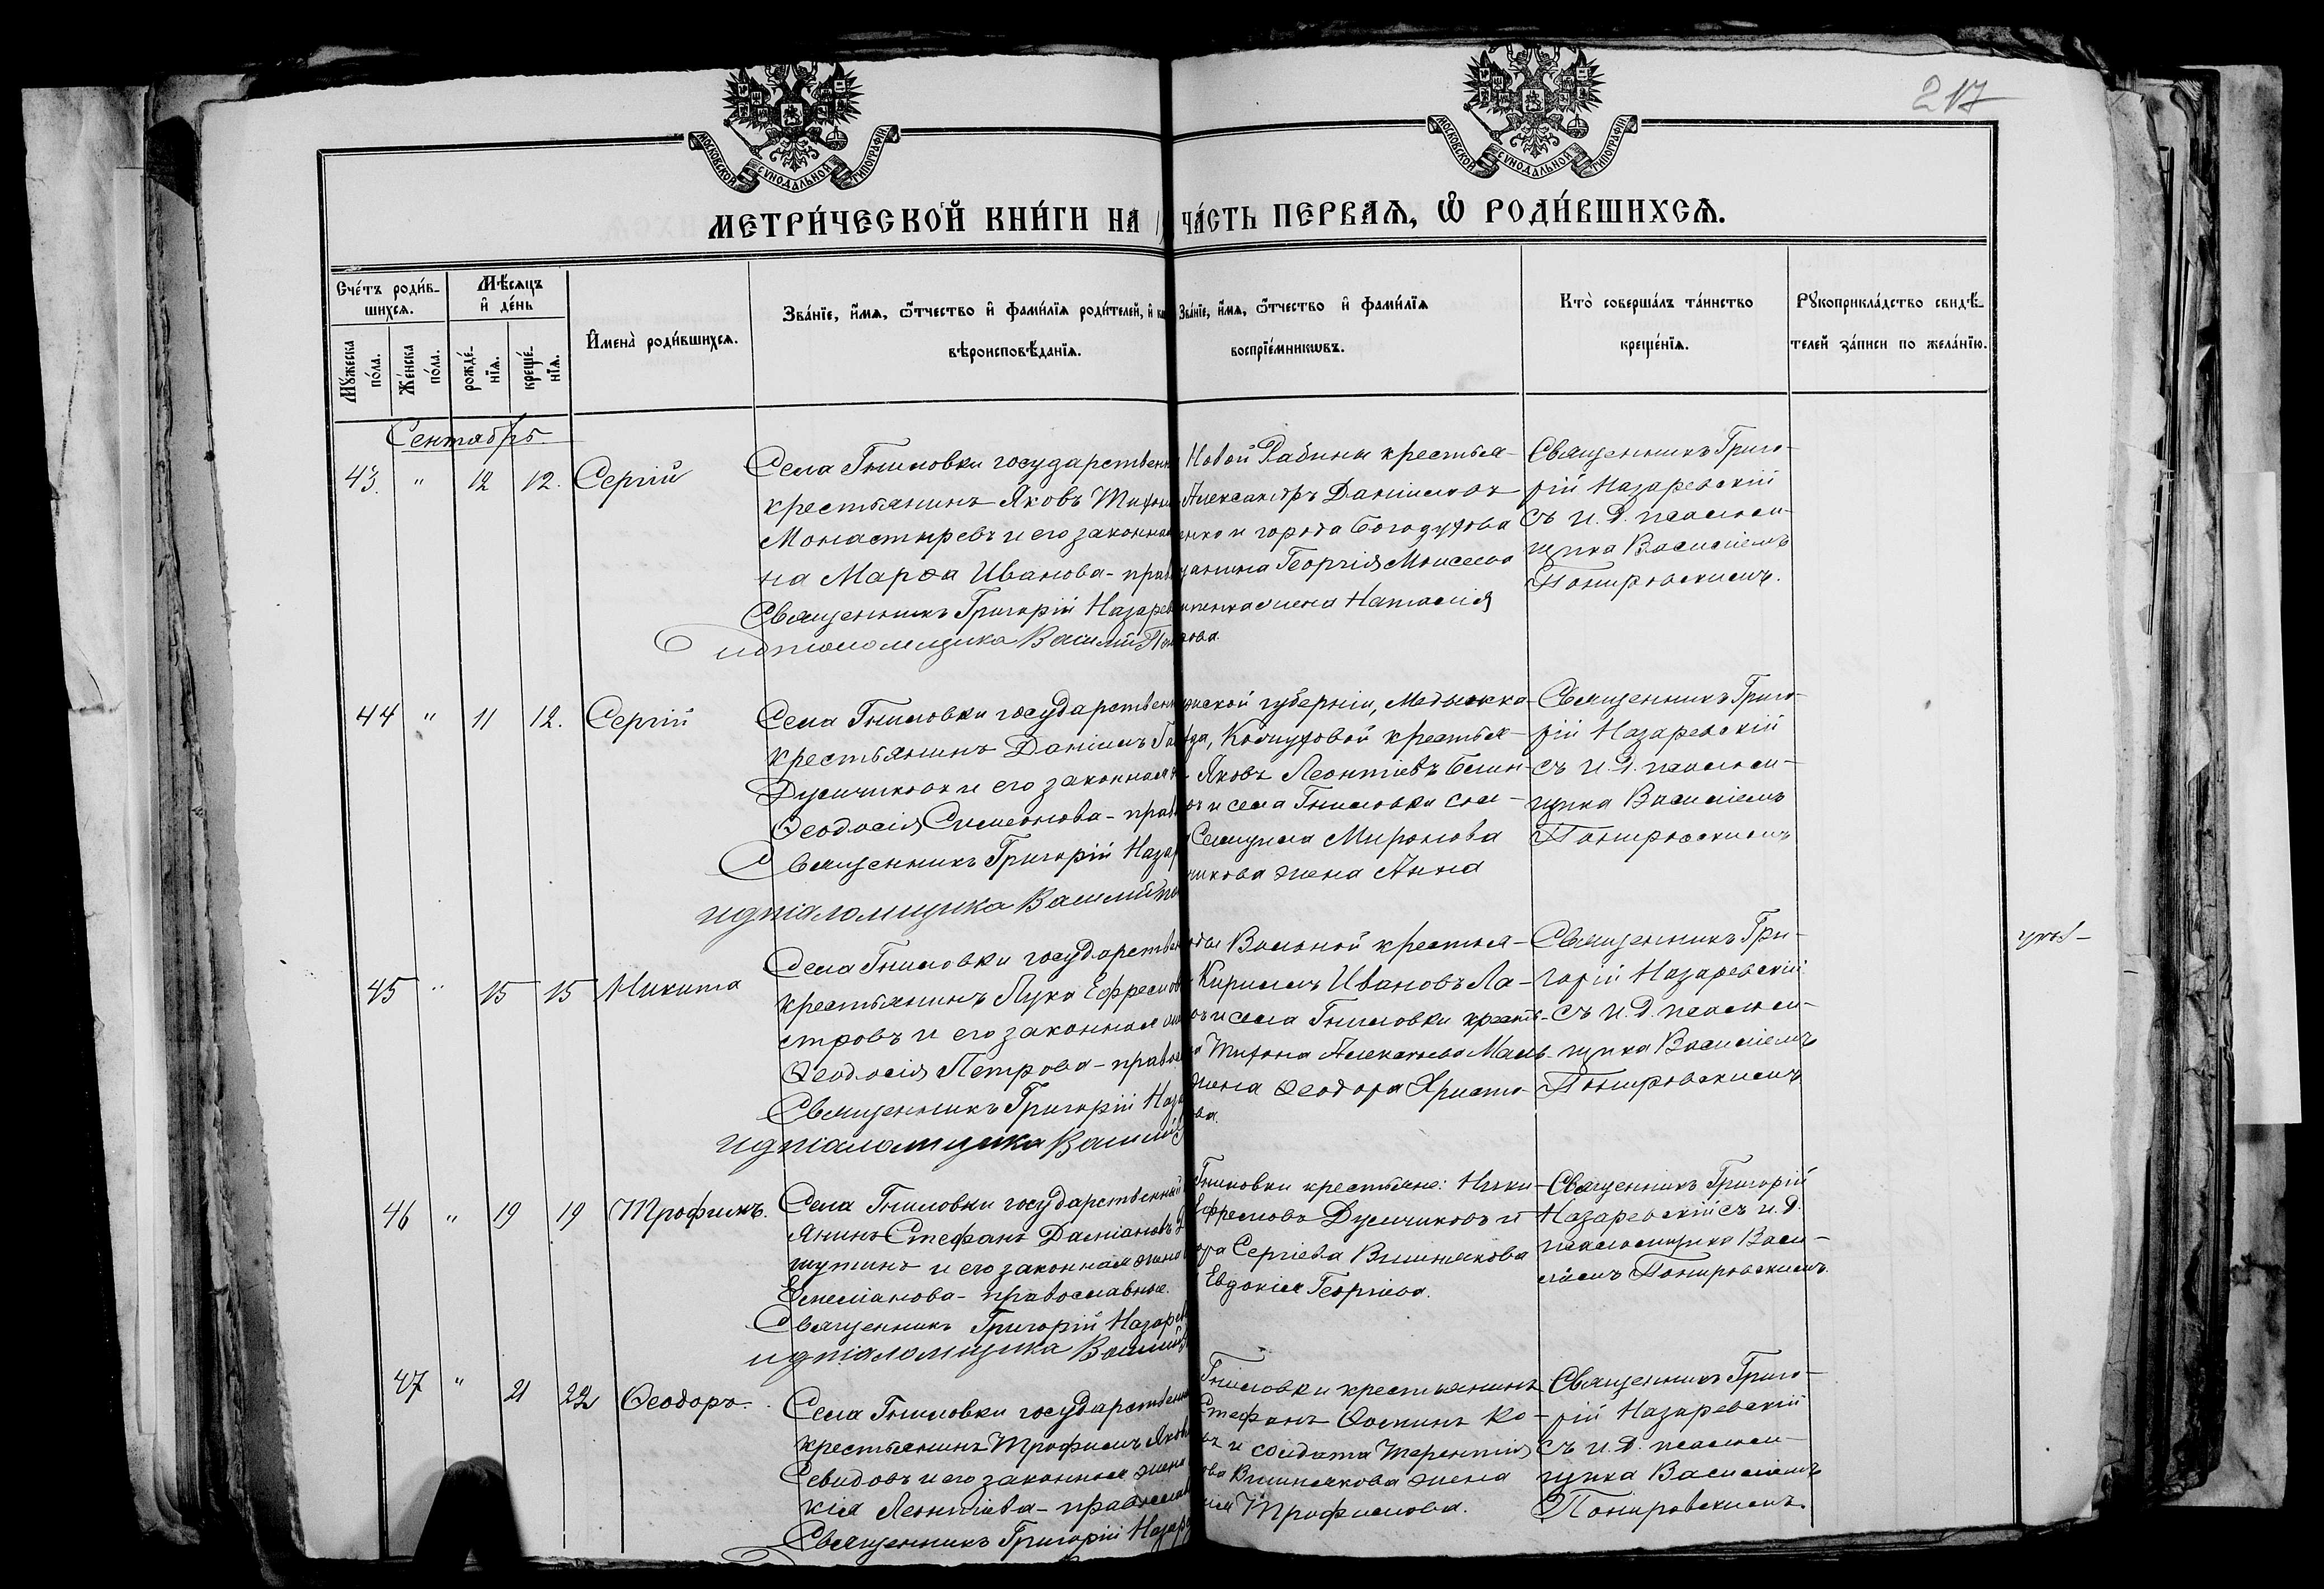 217
МОСКОВСКОЙ СѴНОДАЛЬНОЙ ТИПОГРАФІИ
МОСКОВСКОЙ СѴНОДАЛЬНОЙ ТИПОГРАФІИ
МЕТРИ́ЧЕСКОЙ КНИ́ГИ НА
ЧА́СТЬ ПЕРВАѦ, Ѽ РОДИ́ВШИХСѦ.
Сче́тъ роди́в-
шихся.
Мꙋ́жеска
по́ла.
Же́нска
по́ла.
Мѣ́сяцъ
и҆ де́нь
рожде́-
нїя.
креще́-
нїя.
И҆мена̀ роди́вшихся.
Зва́нїе, и҆́мя, ѻ҆́тчество и҆ фами́лїя роди́телей, и҆
вѣроисповѣ́данїя.
Зва́нїе, и҆́мя, ѻ҆́тчество и҆ фами́лїя
воспрїе́мникѡвъ.
Кто̀ соверша́лъ та́инство
креще́нїя.
Рꙋкоприкла́дство свидѣ́-
телей за́писи по жела́нїю.
Сентябрь
43. " 12 12. Сергій
Села Гниловки государствен
крестьянинъ Яковъ Тихон
Монастыревъ и его законная
на Марѳа Иванова - прав
Священникъ Григорій Назарев
и д псаломщика Василій Пон
Новой Рабины крестья-
Александръ Даниловъ
енко и города Богодухова
щанина Георгія Моисеева
жена Наталія
ова.
Священникъ Григо-
рій Назаревскій
съ и. д. псаломщ-
щика Василіемъ
Понировскимъ.
44 " 11 12. Сергій
Села Гниловки государствен
крестьянинъ Даніилъ Га
Думчиковъ и его законная
Ѳеодосія Симеонова - прав
Священникъ Григорій Назар
и д псаломщика Василій По
жской губерніи,
зда, крестья-
Яковъ Леонтіевъ
въ и села Гниловки
Миронова
чикова жена Анна
Священникъ Григо-
рій Назаревскій
съ и. д. псаломщ-
щика Василіемъ
Понировскимъ
45 " 15 15 Никита
Села Гниловки государствен
крестьянинъ Лука Ефремов
стровъ и его законная
Ѳеодосія Петрова - право
Священникъ Григорій Наза
и д псаломщика Василій
оды Вольной крестья-
Кириллъ Ивановъ Ла-
въ и села Гниловки кресть-
на Тихона
жена Ѳеодора Христо-
ва.
Священникъ Гри-
горій Назаревскій
съ и. д. псаломщ-
щика Василіемъ
Понировскимъ
46 " 19 19 Трофимъ.
Села Гниловки государственный
янинъ Стефанъ Даміановъ
шутинъ и его законная жена
Емеліанова - православные.
Священникъ Григорій Назарев
и д псаломщика Василій
Гниловки крестьяне: Ники-
Ефремовъ Думчиковъ и
Сергіева Вишнякова
Евдокія Георгіева.
Священникъ Григорій
Назаревскій съ и. д.
псаломщика Васи-
ліемъ Понировскимъ.
47 " 21 22 Ѳеодоръ.
Села Гниловки государственн
крестьянинъ Трофимъ Яков
Севидовъ и его законная жена
кія Леонтіева - православ
Священникъ Григорій Назар
Гниловки крестьянинъ
Стефанъ Ѳоминъ Ко-
въ и солдата Терентія
ова Вишнякова жена
Трофимова.
Священникъ Григо-
рій Назаревскій
съ и. д. псаломщ-
щика Василіемъ
Понировскимъ.